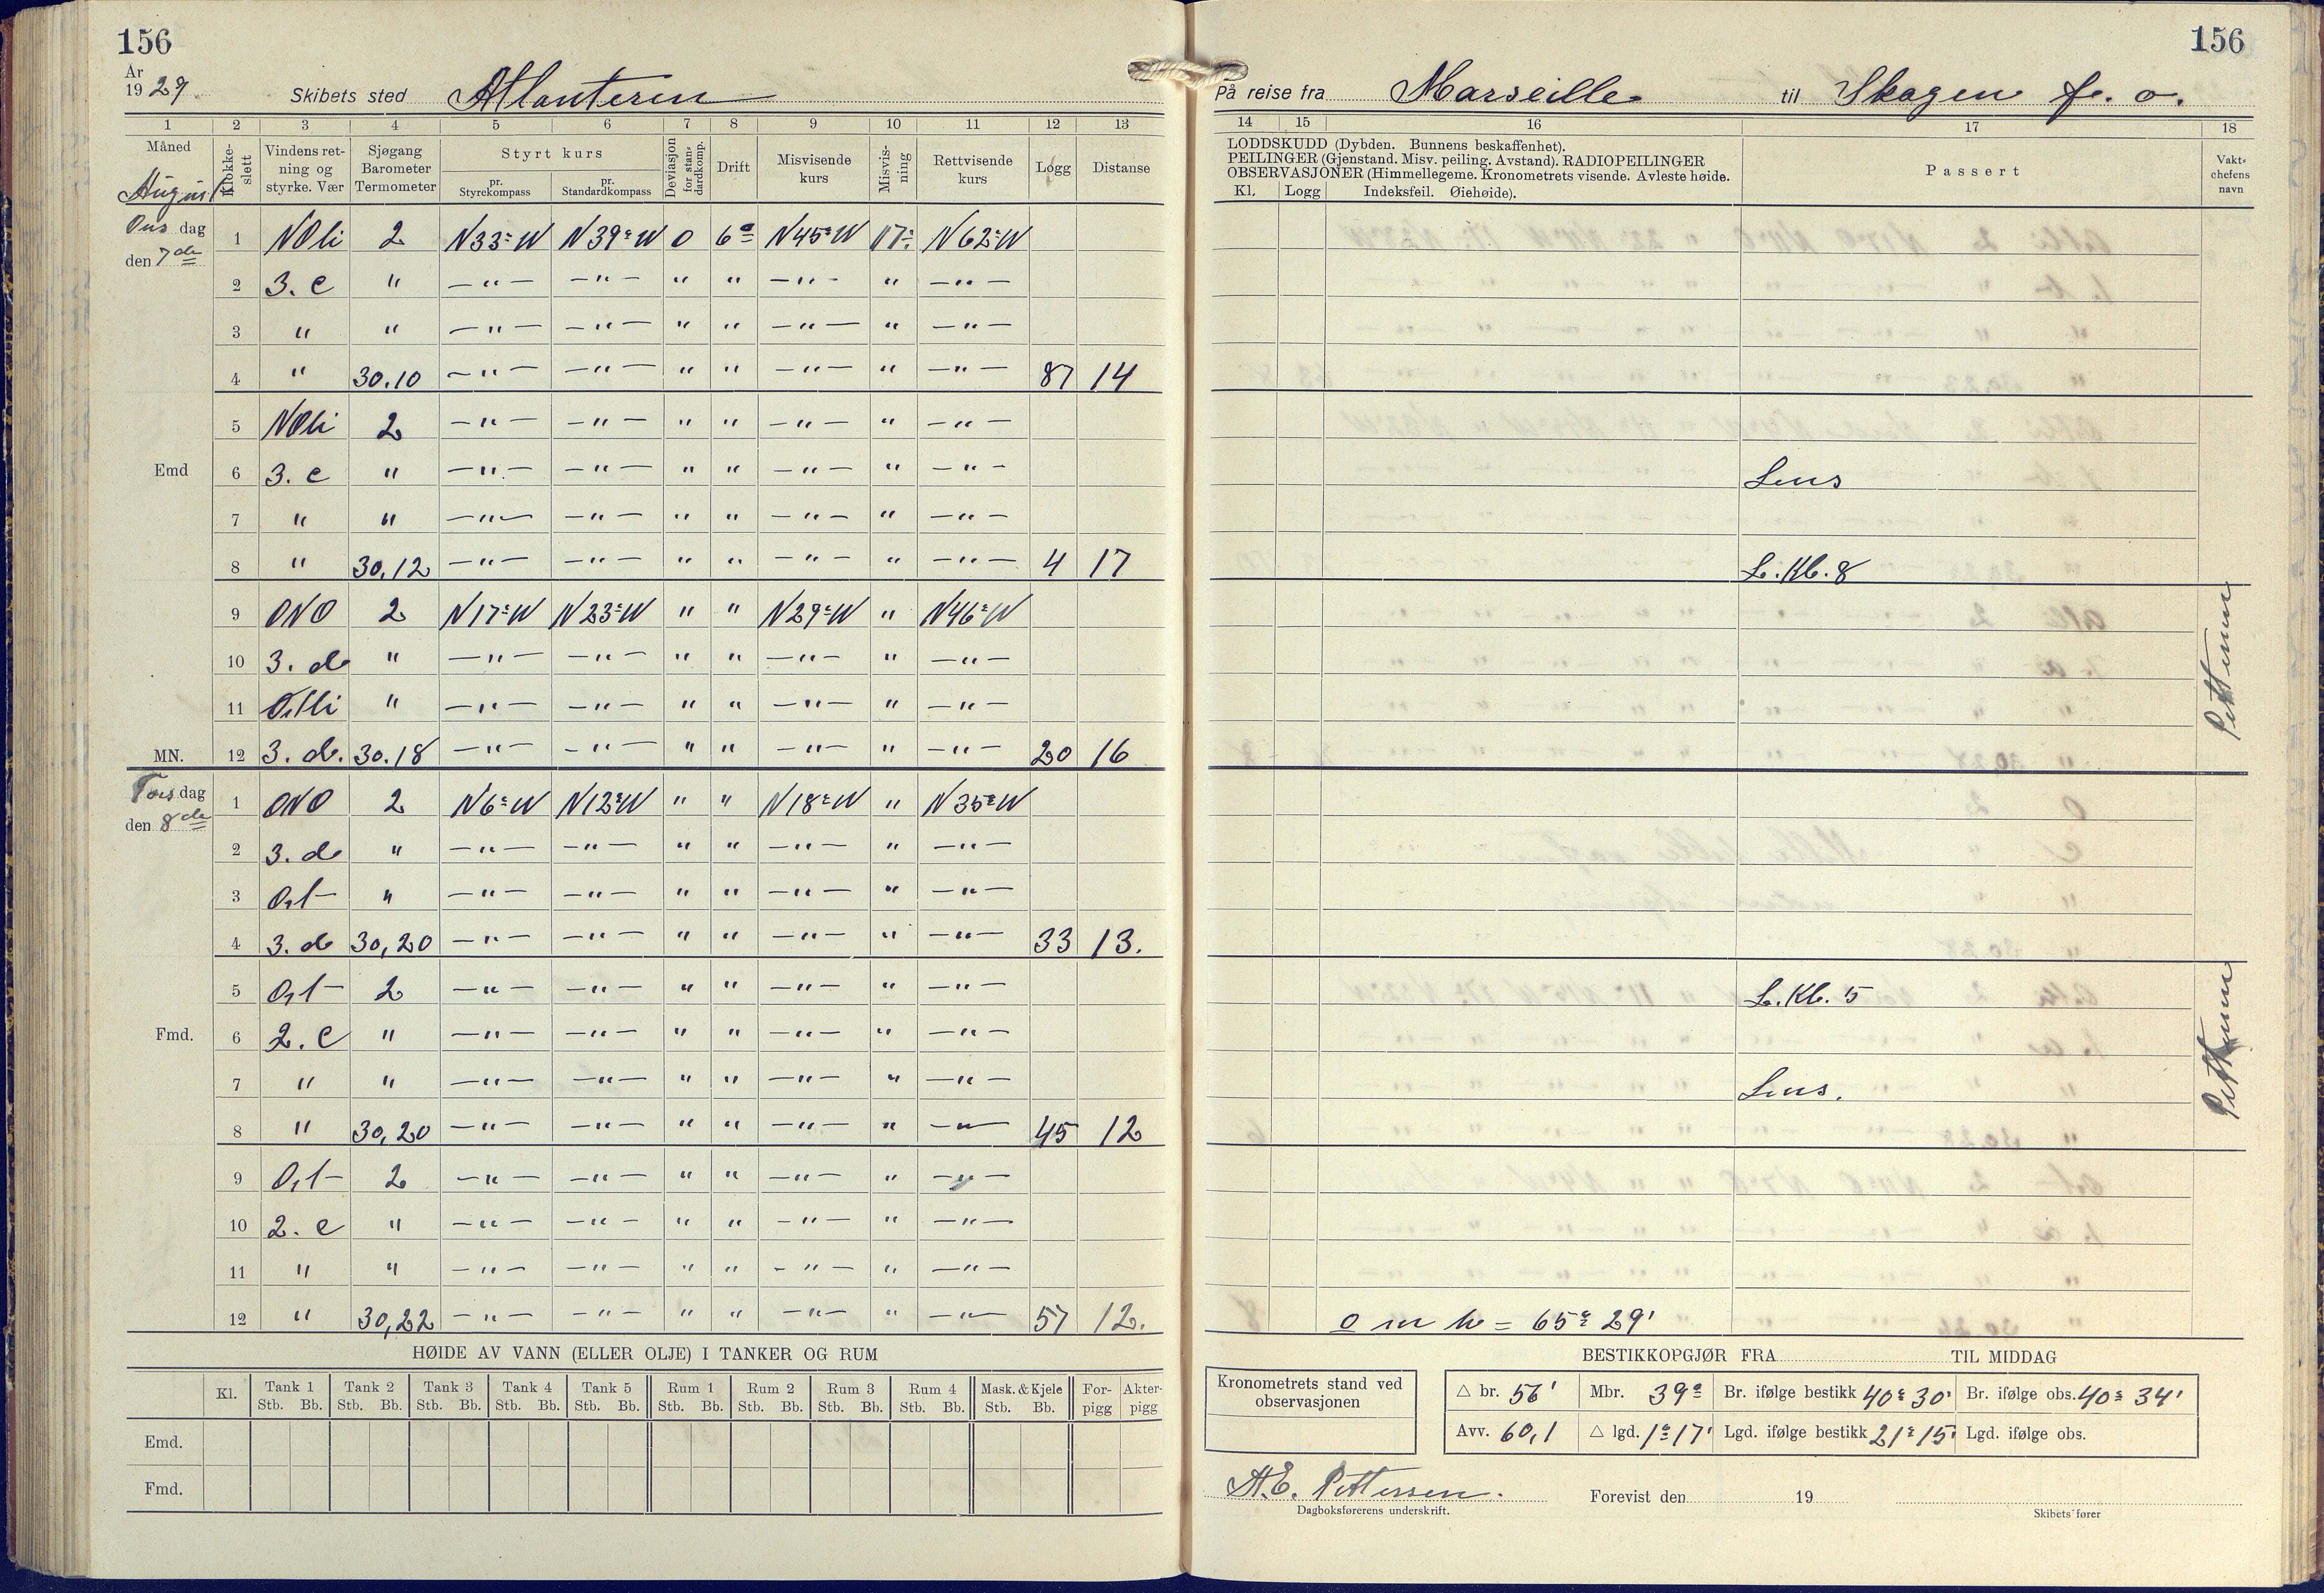 156
År
19 29. Skibets sted Atlanteren
1 2 3 4 5 6 7 8 9 10 11 12 13
Måned August
Klokkeslett
Vindens retning og styrke. Vær
Sjøgang Barometer Termometer
Styrt kurs
pr. Styrekompass
pr. Standardkompass
Deviasjon for standardkomp.
Drift
Misvisende kurs
Misvisning
Rettvisende kurs
Logg
Distanse
Ons dag
den 7de
1 NOli 2 N33°W N39°W 0 6° N45°W 17° N62°W
2 3. c " —"— —"— " " —"— " —"—
3 " " —"— —"— " " —"— " —"—
4 " 30.10 —"— —"— " " —"— " —"— 87 14
5 NOli 2 —"— —"— " " —"— " —"—
Emd 6 3. c " —"— —"— " " —"— " —"—
7 " " —"— —"— " " —"— " —"—
8 " 30.12 —"— —"— " " —"— " —"— 4 17
9 ONO 2 N17°W N23°W " " N29°W " N46°W
10 3. d " —"— —"— " " —"— " —"—
11 Ostli " —"— —"— " " —"— " —"—
MN. 12 3. d. 30.18 —"— —"— " " —"— " —"— 20 16
Tors dag
den 8de
1 ONO 2 N6°W N12°W " " N18°W " N35°W
2 3. d " —"— —"— " " —"— " —"—
3 Ost " —"— —"— " " —"— " —"—
4 3. d 30,20 —"— —"— " " —"— " —"— 33 13.
5 Ost 2 —"— —"— " " —"— " —"—
Fmd. 6 2. c " —"— —"— " " —"— " —"—
7 " " —"— —"— " " —"— " —"—
8 " 30,20 —"— —"— " " —"— " —"— 45 12
9 Ost 2 —"— —"— " " —"— " —"—
10 2. c " —"— —"— " " —"— " —"—
11 " " —"— —"— " " —"— " —"—
12 " 30,22 —"— —"— " " —"— " —"— 57 12.
HØIDE AV VANN (ELLER OLJE) I TANKER OG RUM
Kl. Tank 1 Tank 2 Tank 3 Tank 4 Tank 5 Rum 1 Rum 2 Rum 3 Rum 4 Mask. & Kjele For- Akter-
Stb. Bb. Stb. Bb. Stb. Bb. Stb. Bb. Stb. Bb. Stb. Bb. Stb. Bb. Stb. Bb. Stb. Bb. Stb. Bb. pigg pigg
Emd.
Fmd.
156
På reise fra Marseille til Skagen f. o.
14 15 16 17 18
LODDSKUDD (Dybden. Bunnens beskaffenhet).
PEILINGER (Gjenstand. Misv. peiling. Avstand). RADIOPEILINGER
OBSERVASJONER (Himmellegeme. Kronometrets visende. Avleste høide.
Kl. Logg Indeksfeil. Øiehøide).
Passert
Vaktchefens navn
Lens
L. Kl. 8
Pettersen
L. Kl. 5
Lens.
Pettersen
o m h = 65° 29'
BESTIKKOPGJØR FRA TIL MIDDAG
Kronometrets stand ved observasjonen
△ br. 56' Mbr. 39° Br. ifølge bestikk 40° 30' Br. ifølge obs. 40° 34'
Avv. 60,1 △ lgd. 1° 17' Lgd. ifølge bestikk 21° 15' Lgd. ifølge obs.
A.E. Pettersen.
Dagboksførerens underskrift.
Forevist den 19
Skibets fører